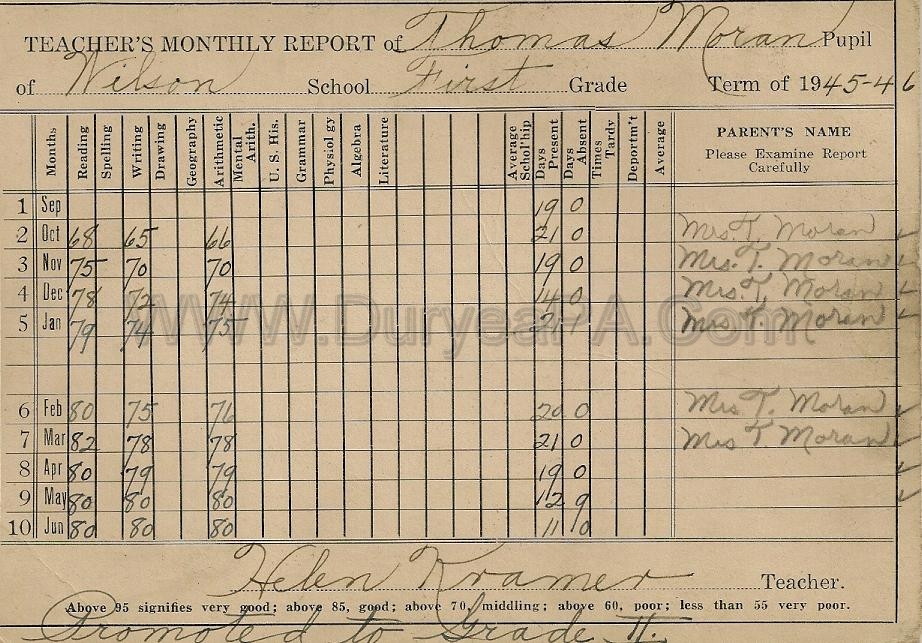 TEACHER'S MONTHLY REPORT of Thomas Moran Pupil
of Wilson School First Grade Term of 1945-46
Months Reading Spelling Writing Drawing Geography Arithmetic Mental Arith. U. S. His. Grammar Physiol gy Algebra Literature Average Schol'hip Days Present Days Absent Times Tardy Deportm't Average PARENT'S NAME
Please Examine Report
Carefully
1 Sep 19 0
2 Oct 68 65 66 21 0 Mrs. T. Moran ✓
3 Nov 75 70 70 19 0 Mrs. T. Moran ✓
4 Dec 78 72 74 14 0 Mrs. T. Moran ✓
5 Jan 79 74 75 21 1 Mrs T. Moran ✓
WWW.DuryeaPA.Com
6 Feb 80 75 76 20 0 Mrs T. Moran ✓
7 Mar 82 78 78 21 0 Mrs T Moran ✓
8 Apr 80 79 79 19 0 ✓
9 May 80 80 80 12 9 ✓
10 Jun 80 80 80 11 0
Helen Kramer Teacher.
Above 95 signifies very good; above 85, good; above 70, middling; above 60, poor; less than 55 very poor.
Promoted to Grade II.